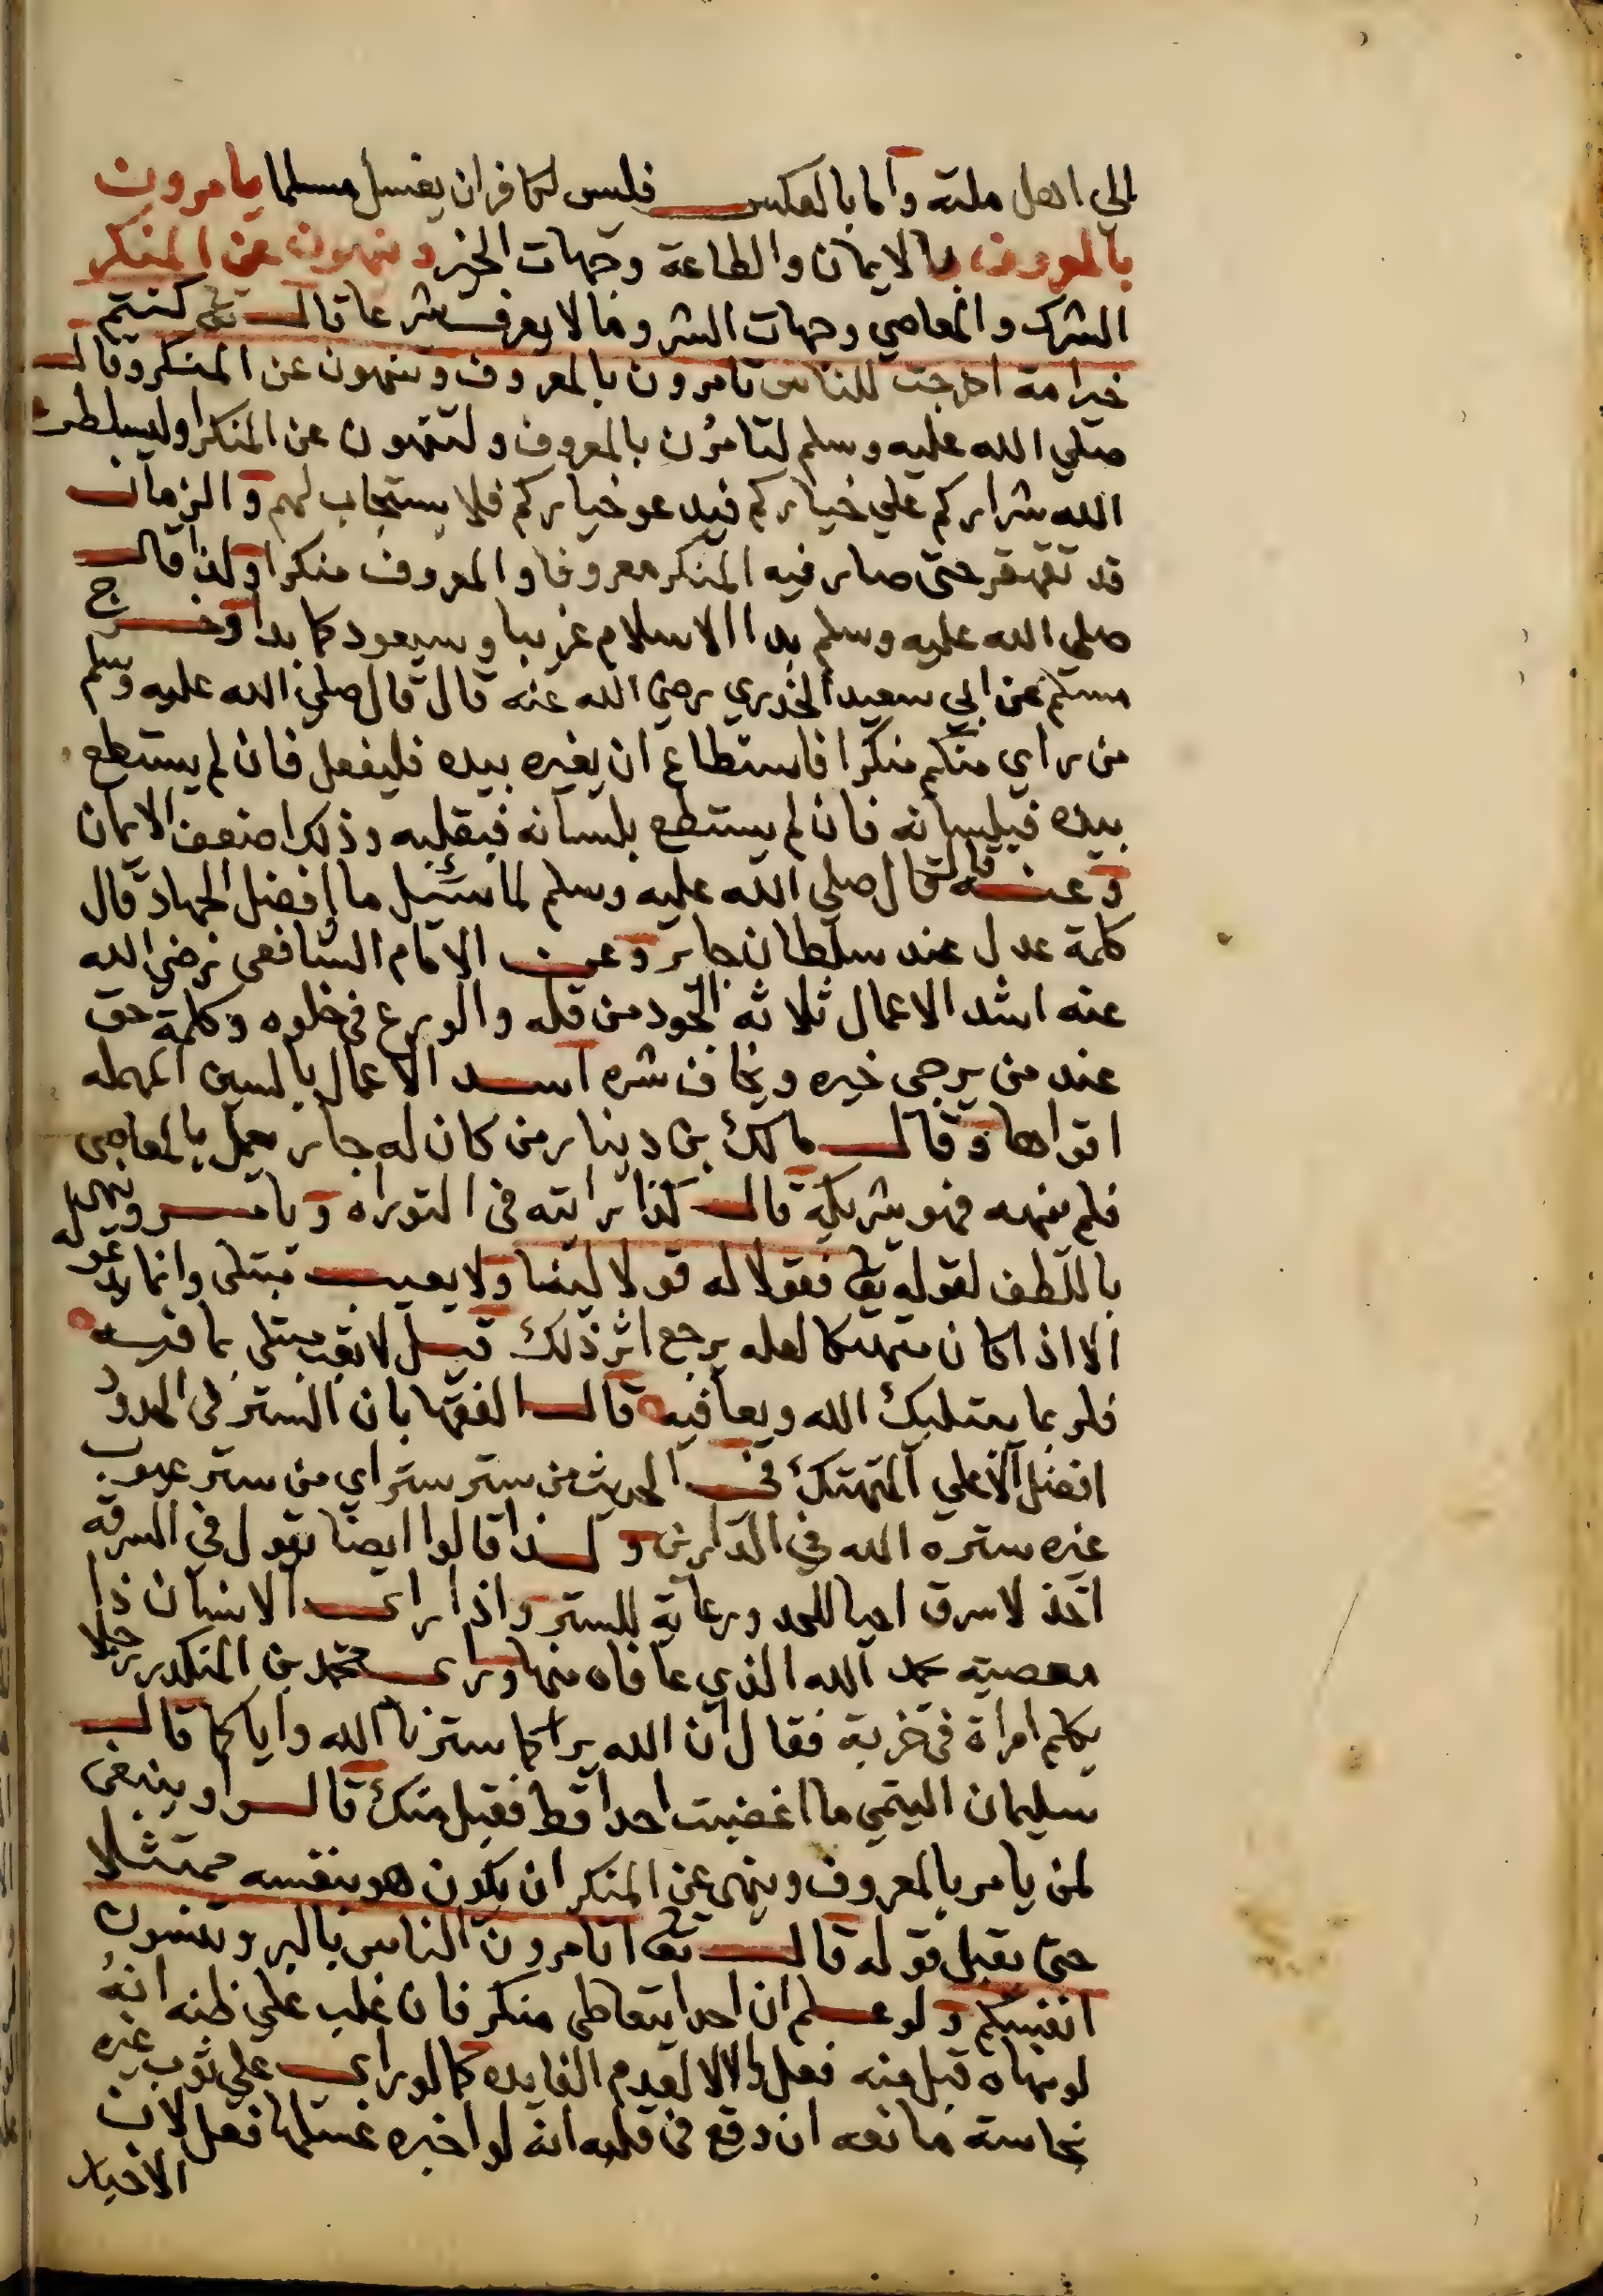 الي اهل ملته واما بالعكس فليس لكافر ان يغسل مسلما يامرون
بالمعروف بالايمان والطاعة وجهات الخير وينهون عن المنكر
الشرك والمعاصي وجهات الشر وما لا يعرف شرعا قال تع كنتم
خير امة اخرجت للناس تامرون بالمعروف وتنهون عن المنكر وقال
صلي الله عليه وسلم لتامرن بالمعروف ولتنهون عن المنكر او ليسلطن
الله شراركم علي خياركم فيدعو خياركم فلا يستجاب لهم والزمان
قد تقهقر حتى صار فيه المنكر معروفا والمعروف منكرا ولذا قال
صلى الله عليه وسلم بدا الاسلام غريبا وسيعود كما بدا وخرج
مسلم عن ابي سعيد الخدري رضي الله عنه قال قال صلي الله عليه وسلم
من راي منكم منكرا فاستطاع ان يغيره بيده فليفعل فان لم يستطع
بيده فبلسانه فان لم يستطع بلسانه فبقلبه وذلك اضعف الايمان
وعنه قال قال صلي الله عليه وسلم لما سئيل ما افضل الجهاد قال
كلمة عدل عند سلطان جاير وعن الامام الشافعي رضي الله
عنه اشد الاعمال ثلاثه الجود من قله والورع في خلوه وكلمة حق
عند من يرجى خيره ويخاف شره اسد الاعمال بالسين المهمله
اقواها وقال مالك بن دينار من كان له جار يعمل بالمعاصي
فلم ينهه فهو شريكه قال كذا رايته في التوراه ويامر وينهى
باللطف لقوله تع فقولا له قولا لينا ولا يعيب مبتلى وانما يدعو له
الا اذا كان متهتكا لعله يرجع اثر ذلك قيل لا تعب مبتلى بما فيه
فلربما يبتليك الله ويعافيه قال الفقها بان الستر في الحدود
افضل الا علي المتهتك في الحديث من ستر ستر اي من ستر عيوب
غيره ستره الله في الدارين ولذا قالوا ايضا يقول في السرقه
اخذ لا سرق احيا للحد ورعاية للستر واذا راى الانسان ذا
معصية حمد الله الذي عافاه منها وراى محمد بن المنكدر رجلا
يكلم امراة في خربة فقال ان الله يراكما سترنا الله واياكما قال
سليمان التيمي ما اغضبت احدا قط فقبل منك قالوا وينبغي
لمن يامر بالمعروف وينهى عن المنكر ان يكون هو بنفسه ممتثلا
حتى يقبل قوله قال تع اتامرون الناس بالبر وتنسون
انفسكم ولو علم ان احدا يتعاطى منكر فان غلب علي ظنه انه
لو نهاه قبل منه فعل والا لا لعدم الفايده كما لو راى علي ثوب غيره
نجاسة مانعه ان وقع في قلبه انه لو اخبره غسلها فعل لان
الاخبار